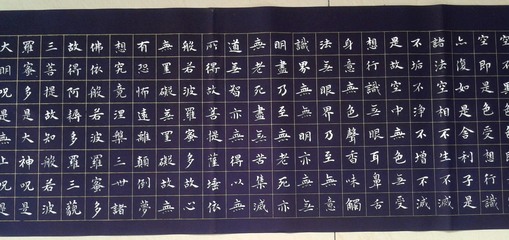 空即是色受想行識
亦復如是舍利子是
諸法空相不生不滅
不垢不淨不增不減
是故空中無色無受
想行識無眼耳鼻舌
身意無色聲香味觸
法無眼界乃至無意
識界無無明亦無無
明盡乃至無老死亦
無老死盡無苦集滅
道無智亦無得以無
所得故菩提薩埵依
般若波羅蜜多故心
無罣礙無罣礙故無
有恐怖遠離顛倒夢
想究竟涅槃三世諸
佛依般若波羅蜜多
故得阿耨多羅三藐
三菩提故知般若波
羅蜜多是大神咒是
大明咒是無上咒是